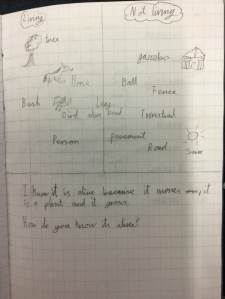 Living
Not living
tree
gazebo
Horse
Ball
Fence
Bush
Leaf
Bird also Dead
Person
pavement
Road
I know it is alive because it moves
is a plant and it grows.
How do you know its alive?